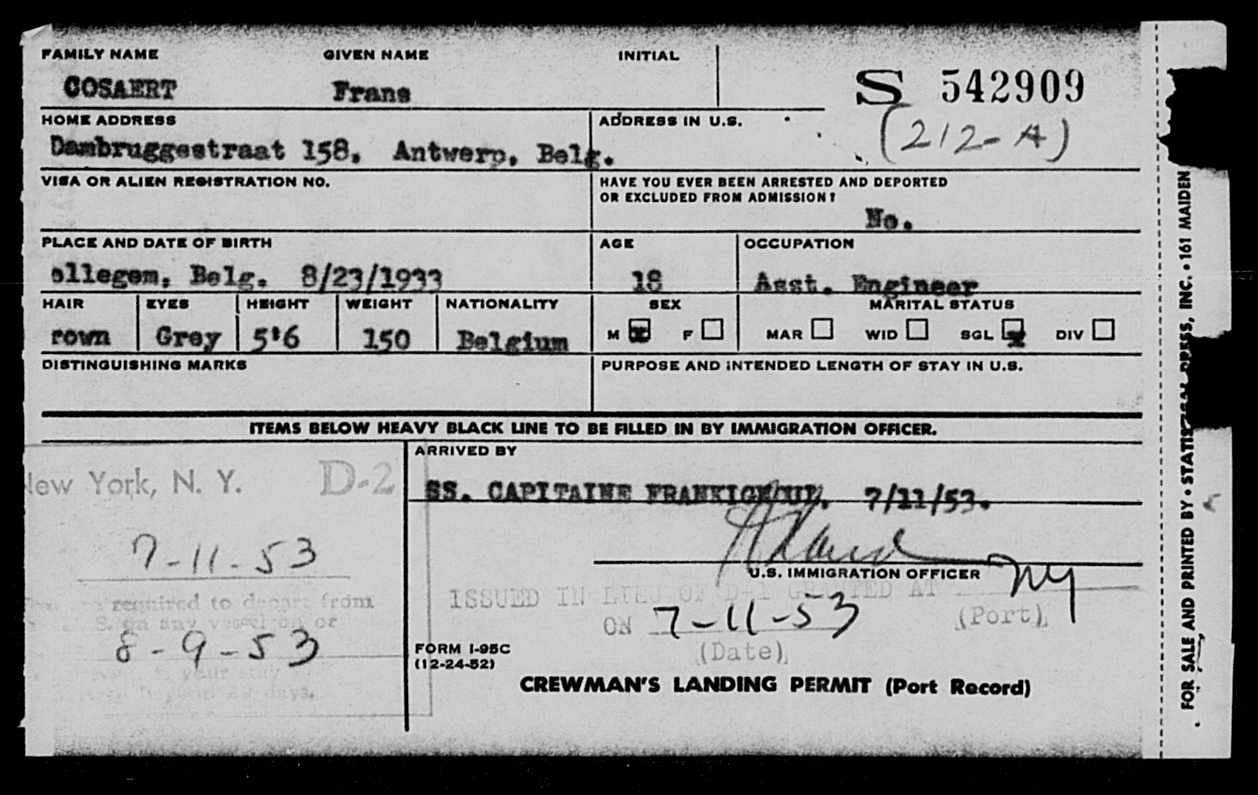 FAMILY NAME GIVEN NAME INITIAL
COSAERT Frans
S 542909
(212-A)
HOME ADDRESS ADDRESS IN U.S.
Dambruggestraat 158, Antwerp, Belg.
VISA OR ALIEN REGISTRATION NO. HAVE YOU EVER BEEN ARRESTED AND DEPORTED
OR EXCLUDED FROM ADMISSION?
No.
PLACE AND DATE OF BIRTH AGE OCCUPATION
ollegem, Belg. 8/23/1933 18 Asst. Engineer
HAIR EYES HEIGHT WEIGHT NATIONALITY SEX MARITAL STATUS
rown Grey 5'6 150 Belgium M X F MAR WID SGL X DIV
DISTINGUISHING MARKS PURPOSE AND INTENDED LENGTH OF STAY IN U.S.
ITEMS BELOW HEAVY BLACK LINE TO BE FILLED IN BY IMMIGRATION OFFICER.
ARRIVED BY
New York, N. Y. D-2
SS. CAPITAINE 7/11/53.
7-11-53
U.S. IMMIGRATION OFFICER
NY
required to depart from
S. on any vessel on or
8-9-53
ISSUED IN LIEU OF D-1 GRANTED AT
(Port)
ON 7-11-53
(Date)
FORM I-95C
(12-24-52)
CREWMAN'S LANDING PERMIT (Port Record)
FOR SALE AND PRINTED BY • PRESS, INC. • 161 MAIDEN